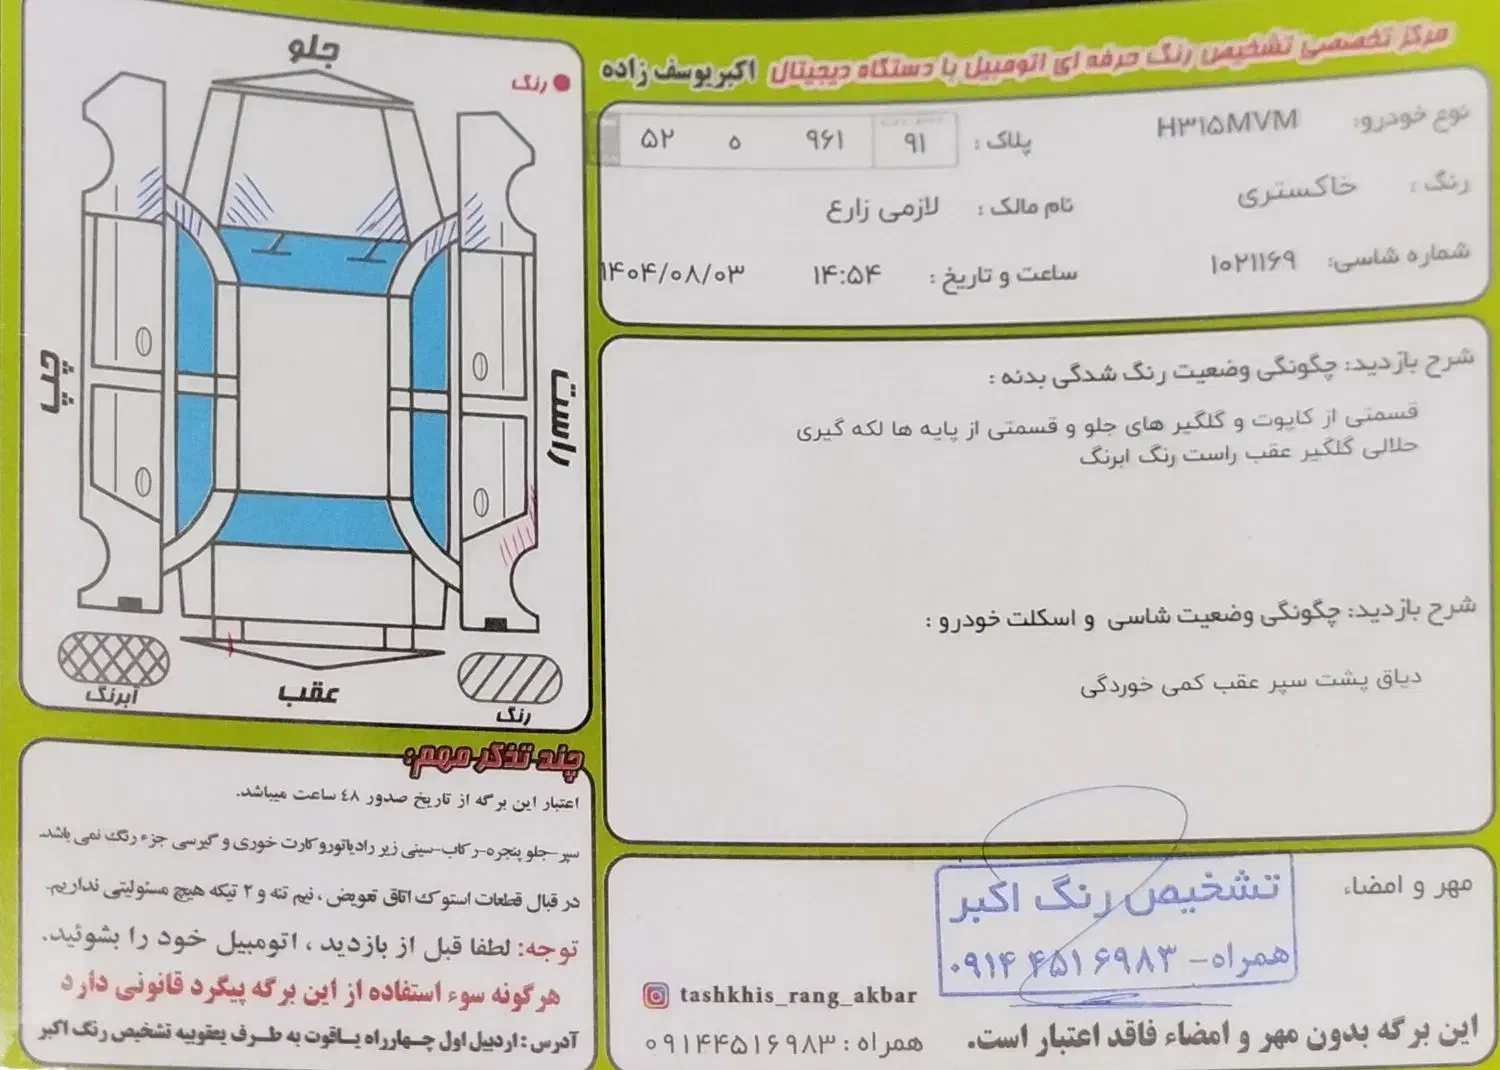 مرکز تخصصی تشخیص رنگ حرفه ای اتومبیل با دستگاه دیجیتال اکبر یوسف زاده
نوع خودرو: H۳۱۵MVM
پلاک : ۹۱ ۹۶۱ ه ۵۲
رنگ : خاکستری
نام مالک : لازمی زارع
شماره شاسی: ۱۰۲۱۱۶۹
ساعت و تاریخ : ۱۴:۵۴ ۱۴۰۴/۰۸/۰۳
شرح بازدید: چگونگی وضعیت رنگ شدگی بدنه :
قسمتی از کاپوت و گلگیر های جلو و قسمتی از پایه ها لکه گیری
حلالی گلگیر عقب راست رنگ ابرنگ
شرح بازدید: چگونگی وضعیت شاسی و اسکلت خودرو :
دیاق پشت سپر عقب کمی خوردگی
مهر و امضاء
تشخیص رنگ اکبر
همراه- ۰۹۱۴ ۴۵۱۶۹۸۳
tashkhis_rang_akbar
این برگه بدون مهر و امضاء فاقد اعتبار است.
همراه : ۰۹۱۴۴۵۱۶۹۸۳
جلو
رنگ
چپ
راست
عقب
آبرنگ
رنگ
چند تذکر مهم:
اعتبار این برگه از تاریخ صدور ۴۸ ساعت میباشد.
سپر-جلو پنجره-رکاب-سینی زیر رادیاتور و کارت خوری و گیرسی جزء رنگ نمی باشد.
در قبال قطعات استوک اتاق تعویض ، نیم تنه و ۲ تیکه هیچ مسئولیتی نداریم.
توجه: لطفا قبل از بازدید ، اتومبیل خود را بشوئید.
هرگونه سوء استفاده از این برگه پیگرد قانونی دارد
آدرس : اردبیل اول چهارراه یاقوت به طرف یعقوبیه تشخیص رنگ اکبر